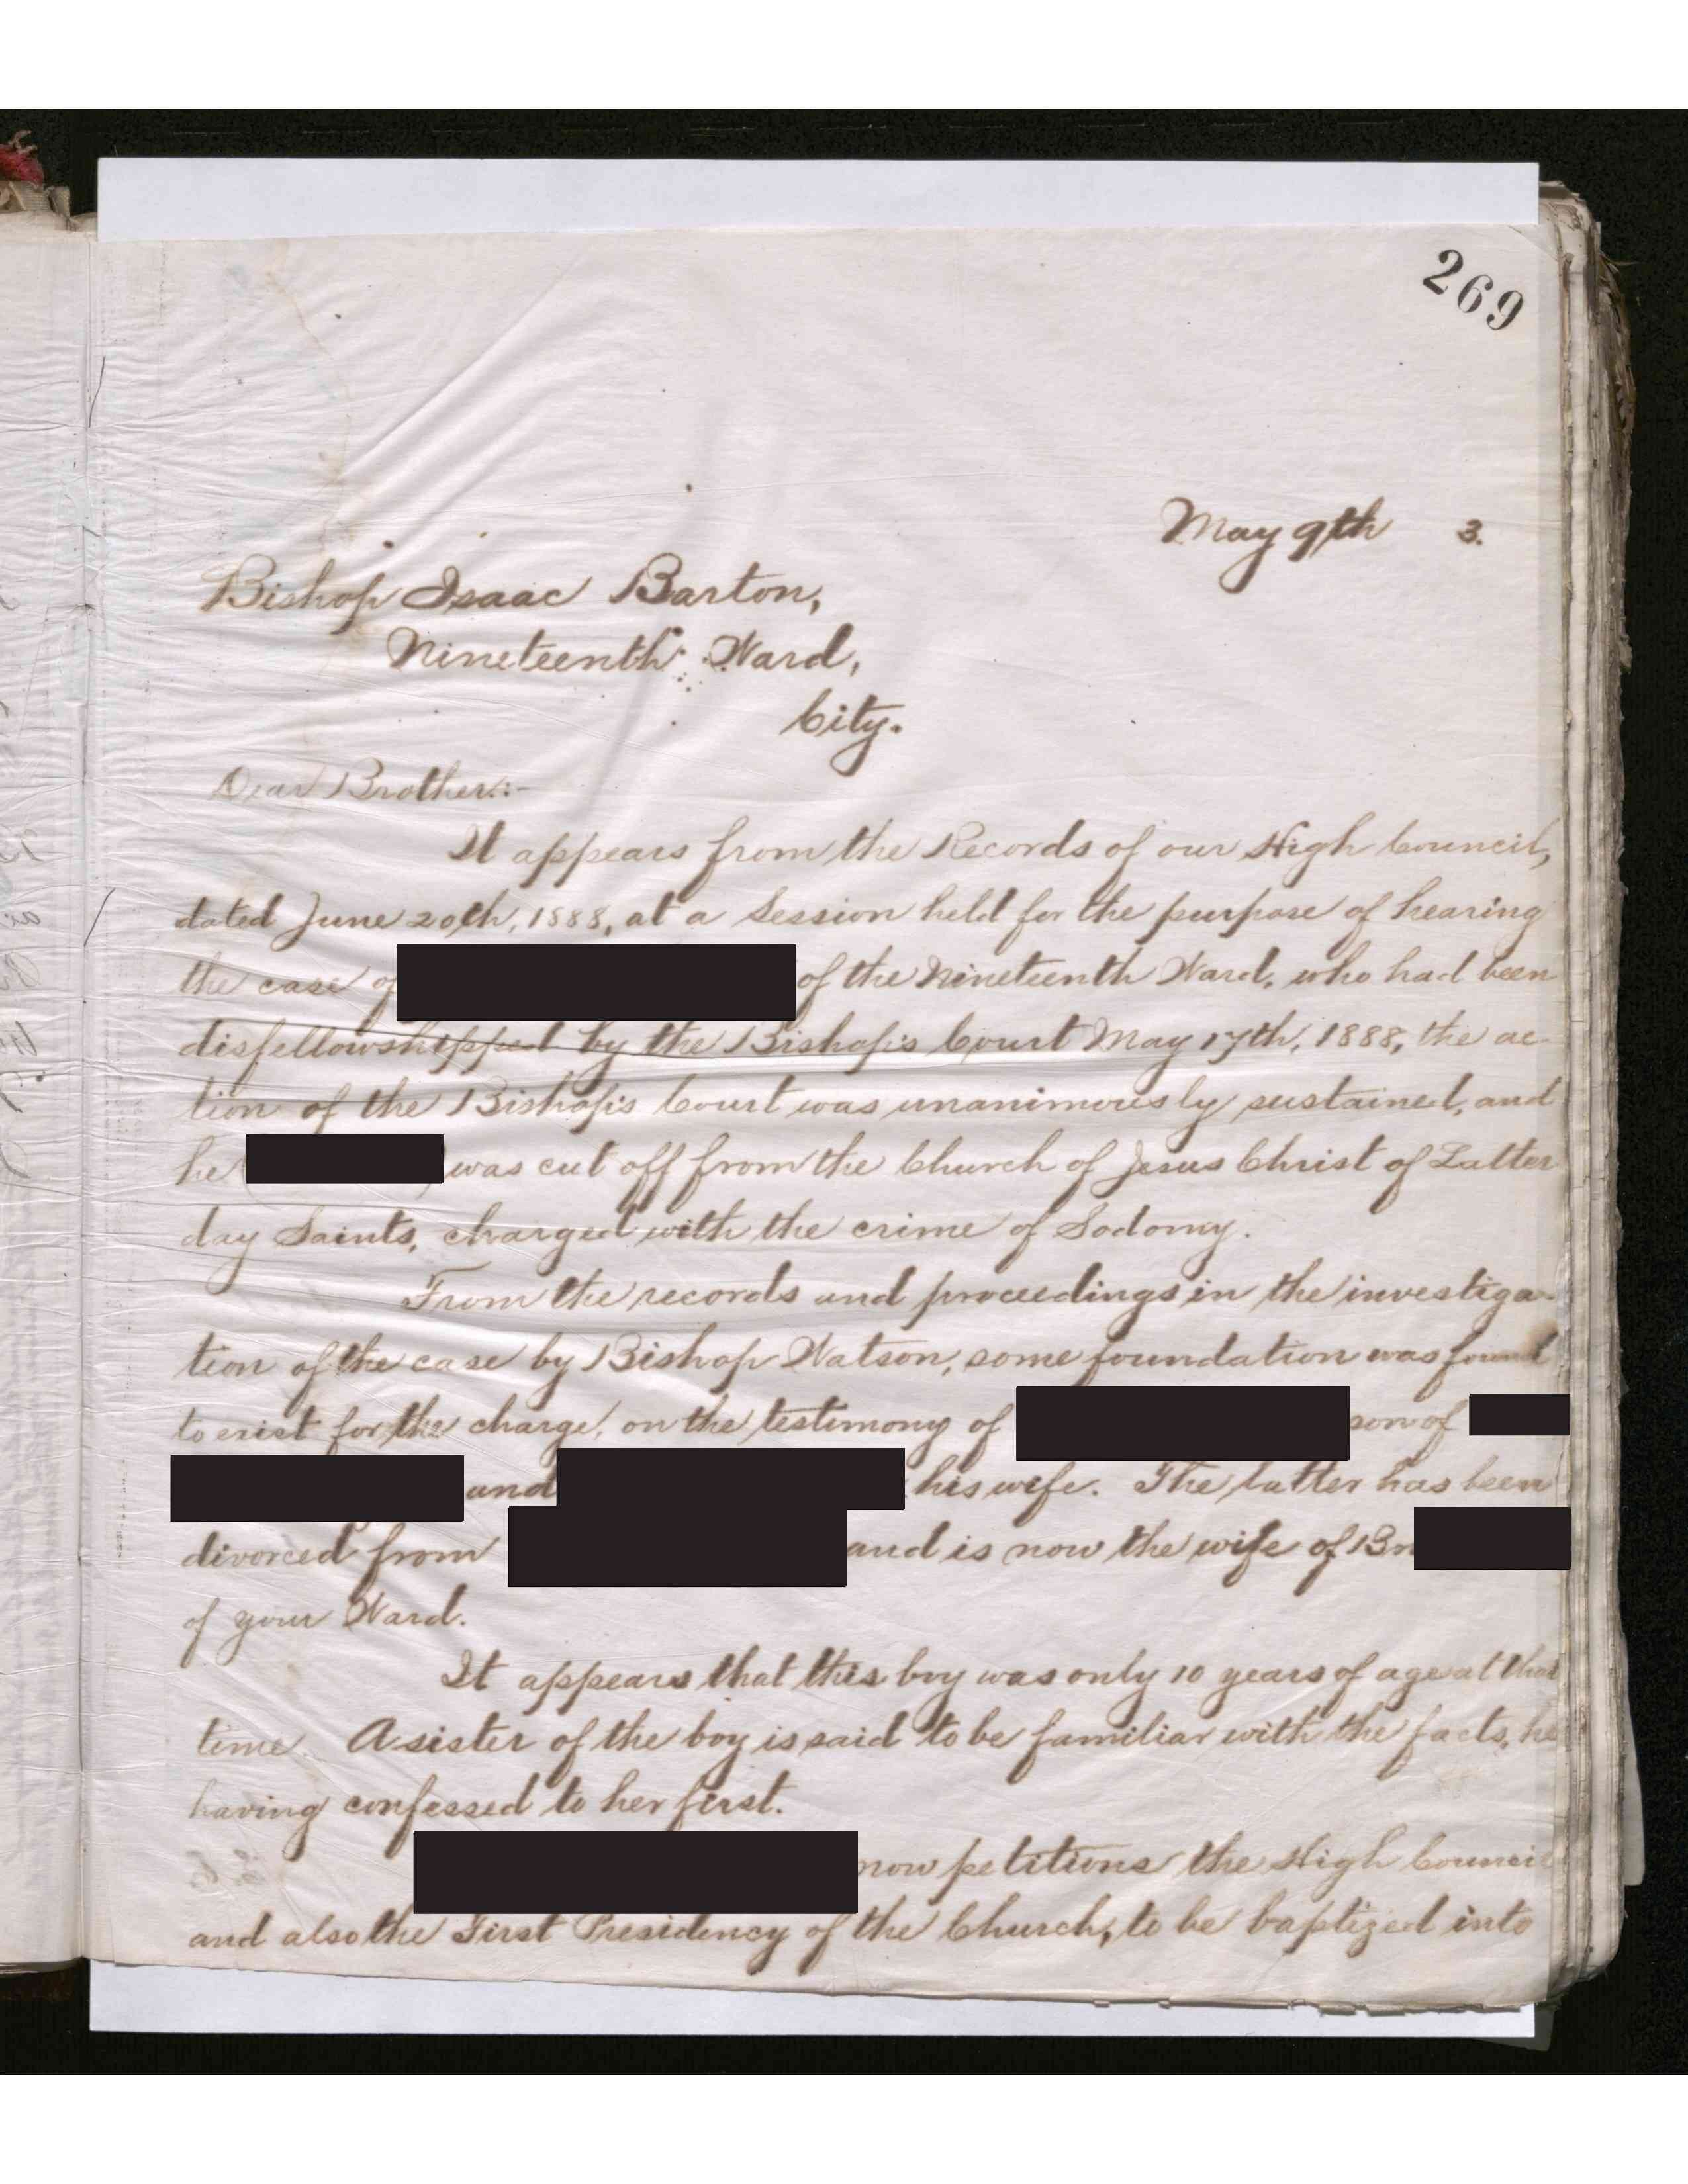 269
May 9th 3.
Bishop Isaac Barton,
Nineteenth Ward,
City.
Dear Brother:-
It appears from the Records of our High Council,
dated June 20th, 1888, at a Session held for the purpose of hearing
the case of of the Nineteenth Ward, who had been
disfellowshipped by the Bishop's Court May 17th, 1888, the ac-
tion of the Bishop's Court was unanimously sustained, and
he ( ) was cut off from the Church of Jesus Christ of Latter
day Saints, charged with the crime of Sodomy.
From the records and proceedings in the investiga-
tion of the case by Bishop Watson, some foundation was found
to exist for the charge, on the testimony of son of
and his wife. The latter has been
divorced from and is now the wife of Bro
of your Ward.
It appears that this boy was only 10 years of age at that
time. A sister of the boy is said to be familiar with the facts, he
having confessed to her first.
now petitions the High Council
and also the First Presidency of the Church, to be baptized into